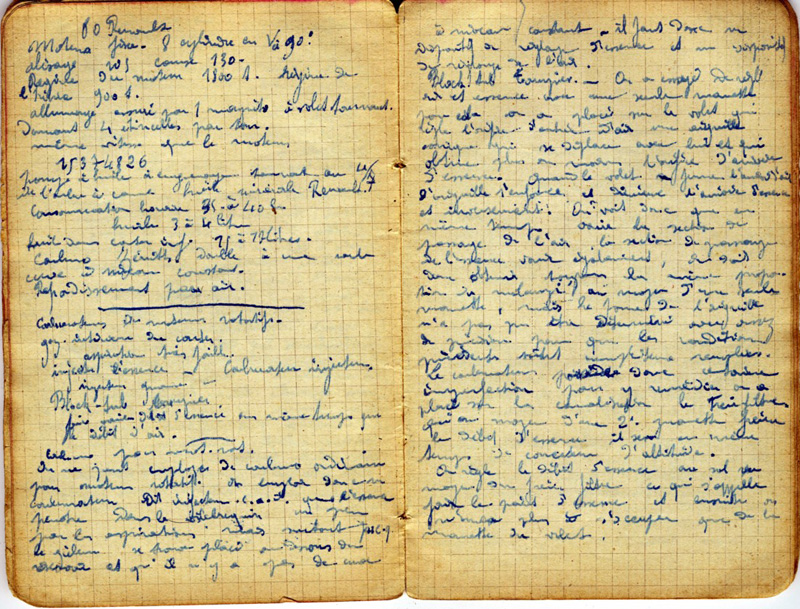 80 Renault
Moteur fixe. 8 cylindre en V à 90°
alisage 105 course 130.
Régime du moteur 1800 t. Régime de
l'hélice 900 t.
allumage assuré par 1 magnéto à volet tournant.
Donnant 4 étincelles par tour.
même vitesse que le moteur.
15374826
pompe à huile à engrenage tournant au
de l'arbre à came huile minérale Renault.
Consommation horaire 35 à 40 l.
huile 3 à 4 litre
huit dans carter inf. litres.
Carbu Zénith double à une
cuve à niveau constant.
Refroidissement par air.
Carburateurs de moteurs rotatifs.
gaz. du carter.
aspiration très faible
injecte l'essence — Carburateur injecteur
injecteur gnome —
Block-tub Tampier
fait varier d'essence en même temps que
le débit d'air.
Carbu pour mot. rot.
On ne peut employer de carburo ordinaire
pour moteur rotatif. On emploie donc un
carburateur dit injecteur c.a.d. que l'essence
pénètre dans le vilebrequin un peu
par les aspirations mais surtout parce q
le se trouve placé au dessous du
réservoir et qu'il n'y a pas de cuve
à niveau constant. il faut donc un
dispositif de réglage d'essence et un
de réglage de l'air.
Block tub Tampier. — On a essayé de régler
air et essence avec une seule manette
pour cela on a placé sur le volet qui
règle l'orifice d'entrée d'air une aiguille
conique qui se déplace avec lui et qui
obture plus ou moins l'orifice d'arrivée
d'essence. Quand le volet ferme l'arrivée d'air
l'aiguille s'enfonce, et diminue l'arrivée d'essence
et inversement. On voit donc que en
même temps varie la section de
passage de l'air, la section de passage
de l'essence varie également, on doit
donc obtenir toujours la même propor-
tion de mélange au moyen d'une seule
manette, mais la forme de l'aiguille
n'a pas pu être déterminé avec assez
de précision pour que les conditions
précédentes soient remplies.
Le carburateur donc certaine
imperfection pour y remédier on a
placé sur la canalisation le
qui au moyen d'une 2e manette freine
le débit d'essence. il sert en même
temps de correcteur d'altitude.
On règle le débit d'essence au sol au
moyen du frein filtre ce qui s'appelle
faire le point d'essence et ensuite on
n'a plus à s'occuper que de la
manette du volet.